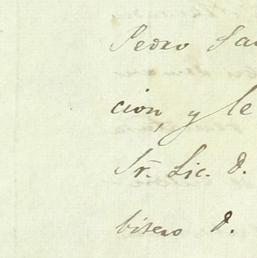 Pedro Sa
cion, y le
Sr. Lic. D.
bitero D.